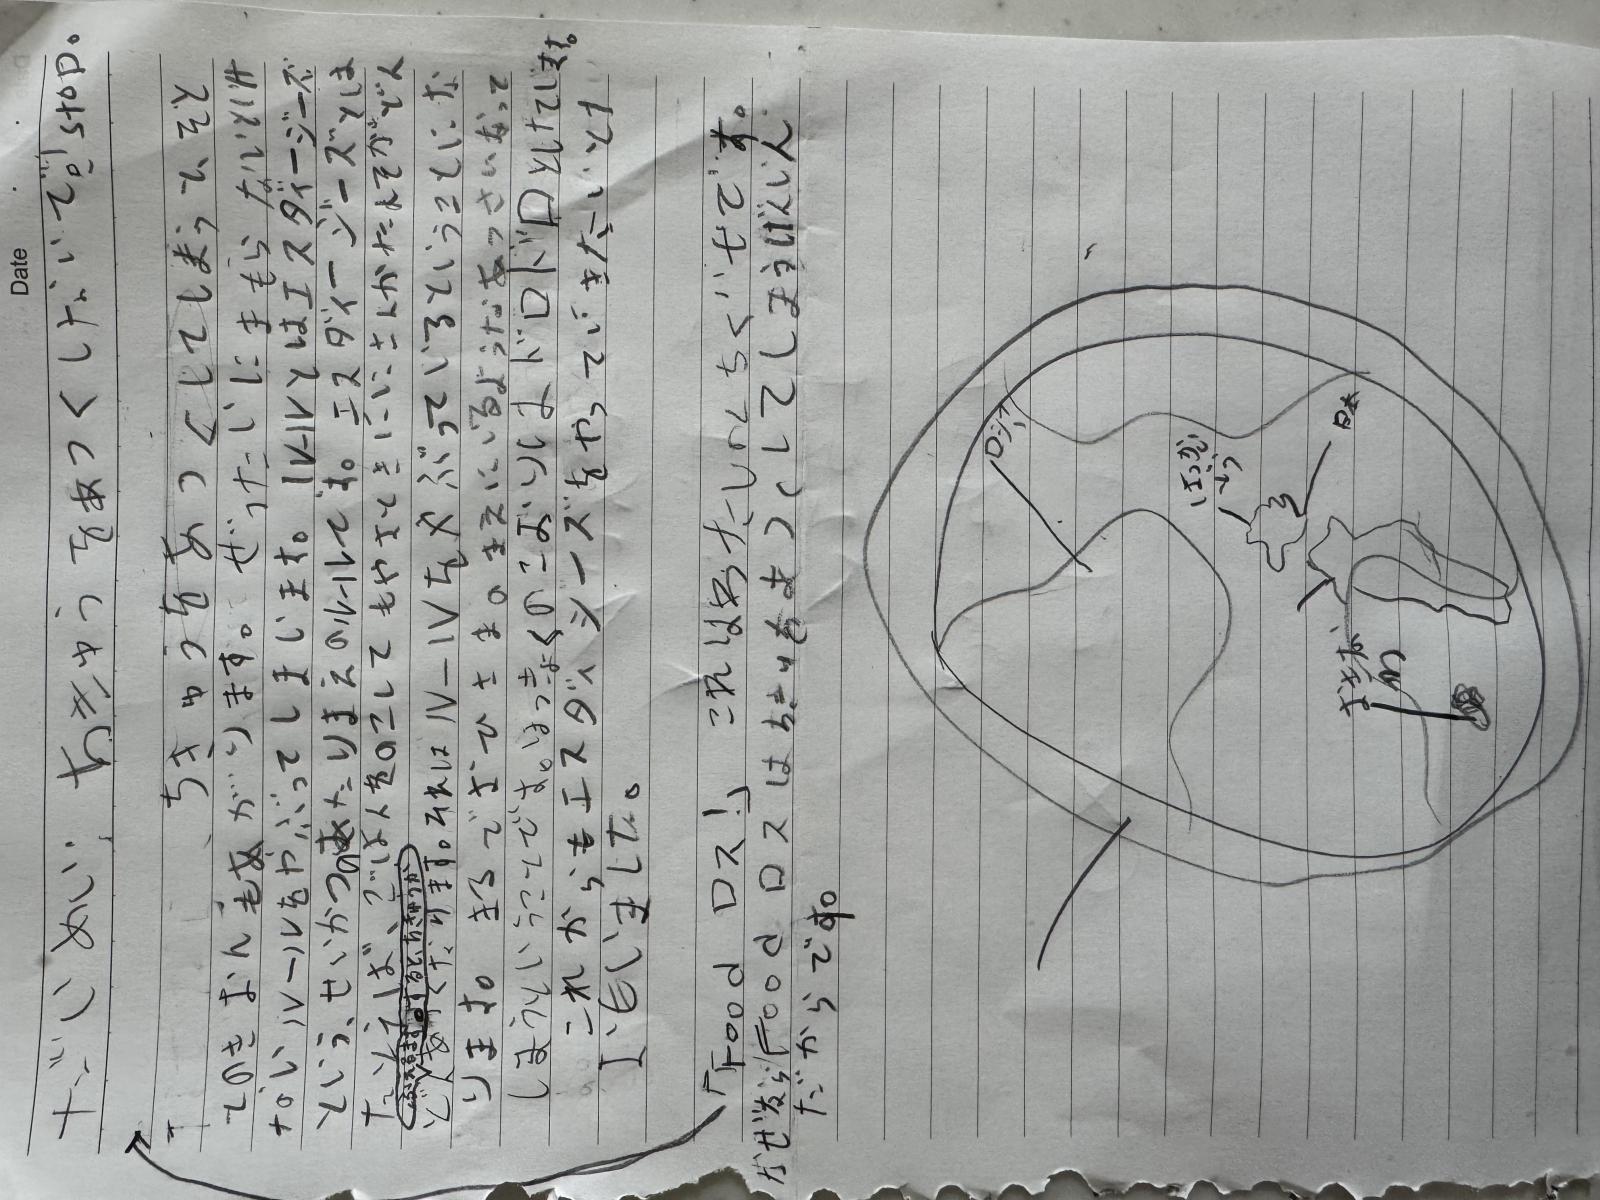 Date
だいめい ちきゅうをあつくしないで!stop。
ちきゅうをあつくしてしまってそと
のきおんもあがります。ぜったいにまもらないといけ
ないルールをやぶってしまいます。ルールとはエスディージーズ
という、せいかつのあたりまえのルールです。エスディージーズとは
たとえば、ごはんをのこしてもやすときににさんかたんそがどん
どんあつくなります。それはルールをやぶっているということにな
ります。まるでまひさまのまえにいるようなあつさになって
しまうということです。ほっきょくのこおりはドロドロとけてします。
これからもエスディジーズをやっていきたいと
いいました。
「Food ロス!」 これは名たしのんちくいせです。
なぜならFood ロスはちきゅうをあつくしてしまうげんいん
だからです。
ロシア
ほっかいどう
日本
おきなわ